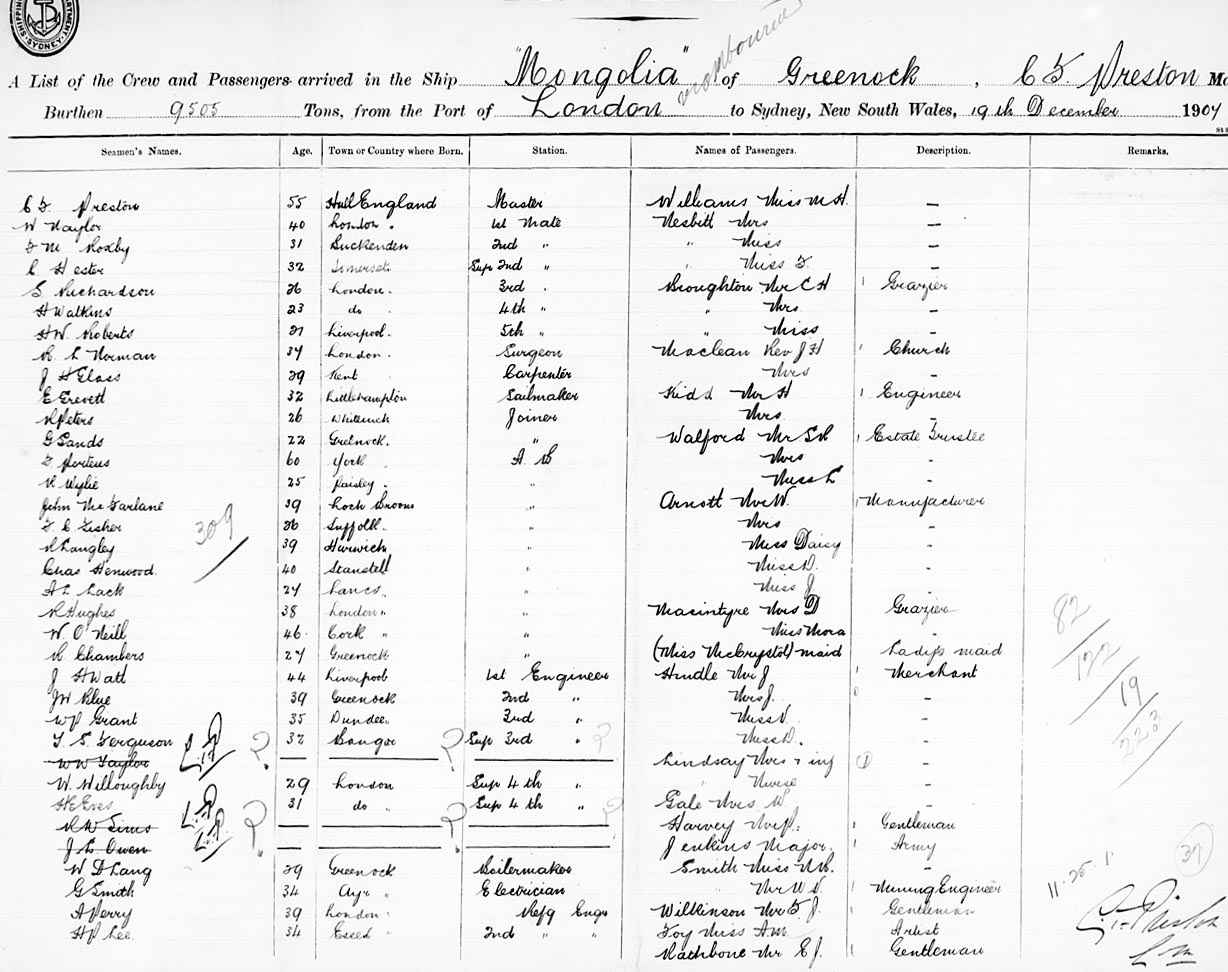 SYDNEY
Melbourne
A List of the Crew and Passengers arrived in the Ship "Mongolia" of Greenock, C F Preston
Burthen 9505 Tons, from the Port of London to Sydney, New South Wales, 19th December 1907
Seamen's Names. Age. Town or Country where Born. Station. Names of Passengers. Description. Remarks.
C F Preston 55 Hull England Master Williams Miss M H. –
W Naylor 40 London " 1st Mate Nesbitt Mrs –
F M Roxby 31 Buckenden 2nd " " Miss –
C Hester 32 Somerset. Sup 2nd " " Miss F. –
S Richardson 26 London. 3rd " Broughton Mr C H 1 Grazier
H Watkins 23 do 4th " " Mrs –
H W Roberts 27 Liverpool. 5th " " Miss –
R L Norman 34 London. Surgeon Maclean Rev J H 1 Church
J H Glass 29 Kent Carpenter Mrs –
E Trevett 32 Littlehampton Sailmaker Kidd Mr H 1 Engineer
R Peters 26 Joiner Mrs –
G Sands 22 Greenock. " Walford Mr 1 Estate Trustee
F Porteus 60 York A B Mrs –
R Wylie 25 Paisley. " Miss L –
John McFarlane 39 Loch Broom " Arnott Mr W. 1 Manufacturer
F C Fisher 26 Suffolk. " Mrs –
309
R Langley 39 Harwich. " Miss Daisy –
Chas Henwood. 40 Stanstell " Miss D. –
A L Lack 24 Lancs. " Miss J –
R Hughes 38 London " " Macintyre Mrs D Grazier
W. O'Neill 46 Cork " " Miss Mora –
82
R Chambers 27 Greenock " (Miss McCrystol) maid Lady's maid
122
J H Watt 44 Liverpool 1st Engineer Hindle Mr J 1 Merchant
19
J W Blue 39 Greenock 2nd " Mrs J. –
W P Grant 35 Dundee " 3rd " Miss V. –
223
T. S. Ferguson 32 Bangor Sup 3rd " Miss D. –
W W Taylor — — Lindsay Mrs & inf 1 –
W. Willoughby 29 London Sup 4th " " Nurse –
H E Eves 31 do " Sup 4th " Gale Mrs W. –
R W Sims — — Harvey Mr P. 1 Gentleman
J L Owen — — Jenkins Major. 1 Army
W. D Lang 29 Greenock Boilermaker Smith Miss M. –
39
G Smith 34 Ayr " Electrician " Mr W S. 1 Mining Engineer
11.25.1
A Perry 39 London " Refg Engr Wilkinson Mr F. J. 1 Gentleman
H P Lee. 34 Essex " 2nd " " Foy Miss A M. Artist
Rathbone Mr E J. 1 Gentleman